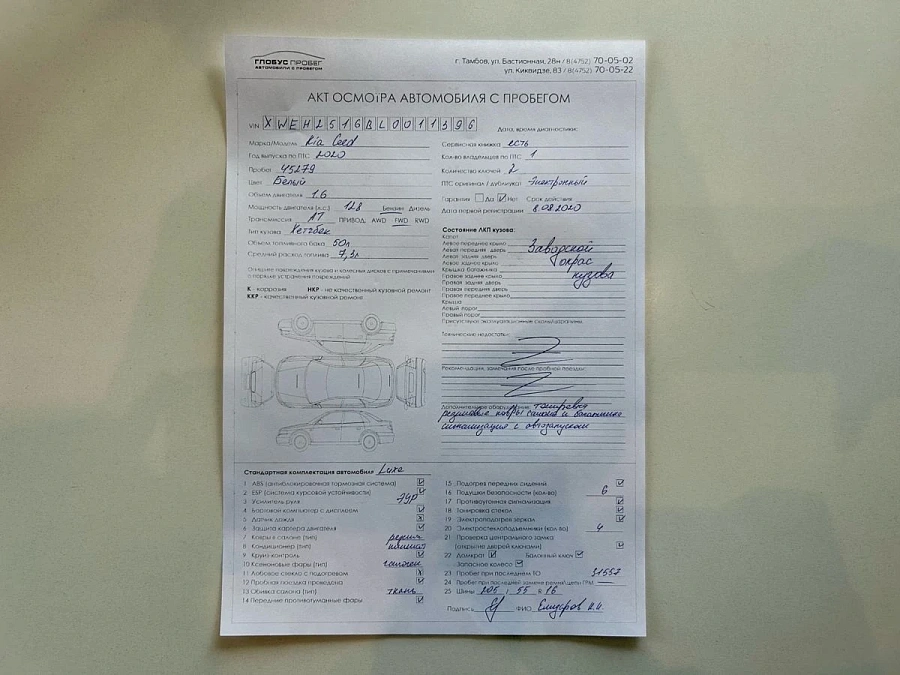 ГЛОБУС ПРОБЕГ
АВТОМОБИЛИ С ПРОБЕГОМ
г. Тамбов, ул. Бастионная, 28н / 8(4752) 70-05-02
ул. Киквидзе, 83 / 8(4752) 70-05-22
АКТ ОСМОТРА АВТОМОБИЛЯ С ПРОБЕГОМ
VIN XWEH2516BL0011396
Дата, время диагностики:
Марка/Модель Kia Ceed
Год выпуска по ПТС 2020
Пробег 45279
Цвет Белый
Объем двигателя 1.6
Мощность двигателя (л.с.) 128 Бензин Дизель
Трансмиссия АТ ПРИВОД: AWD FWD RWD
Тип кузова Хетчбек
Объем топливного бака 50л
Средний расход топлива 7,3л
Опишите повреждения кузова и колесных дисков с примечаниями
о порядке устранения повреждений
К - коррозия НКР - не качественный кузовной ремонт
ККР - качественный кузовной ремонт
Сервисная книжка есть
Кол-во владельцев по ПТС 1
Количество ключей 2
ПТС оригинал / дубликат Электронный
Гарантия Да Нет Срок действия
Дата первой регистрации 8.08.2020
Состояние ЛКП кузова:
Капот
Левое переднее крыло
Левая передняя дверь
Левая задняя дверь
Левое заднее крыло
Крышка багажника
Правое заднее крыло
Правая задняя дверь
Правая передняя дверь
Правое переднее крыло
Крыша
Левый порог
Правый порог
Заводской
окрас
кузова
Присутствуют эксплуатационные сколы/царапины.
Технические недостатки
Рекомендация, замечания после пробной поездки
Дополнительное оборудование тонировка
резиновые ковры салона и багажника
сигнализация с автозапуском
Стандартная комплектация автомобиля Luxe
1 ABS (антиблокировочная тормозная система)
2 ESP (система курсовой устойчивости)
3 Усилитель руля ЭУР
4 Бортовой компьютер с дисплеем
5 Датчик дождя
6 Защита картера двигателя
7 Ковры в салоне (тип) резина
8 Кондиционер (тип) климат
9 Круиз контроль
10 Ксеноновые фары (тип) галоген
11 Лобовое стекло с подогревом
12 Пробная поездка проведена
13 Обивка салона (тип) ткань
14 Передние противотуманные фары
15 Подогрев передних сидений
16 Подушки безопасности (кол-во) 6
17 Противоугонная сигнализация
18 Тонировка стекол
19 Электроподогрев зеркал
20 Электростеклоподъемники (кол-во) 4
21 Проверка центрального замка
(открытие дверей ключами)
22 Домкрат Балонный ключ
Запасное колесо
23 Пробег при последнем ТО 31557
24 Пробег при последней замене ремня/цепи ГРМ
25 Шины 205 / 55 R 16
Подпись ФИО